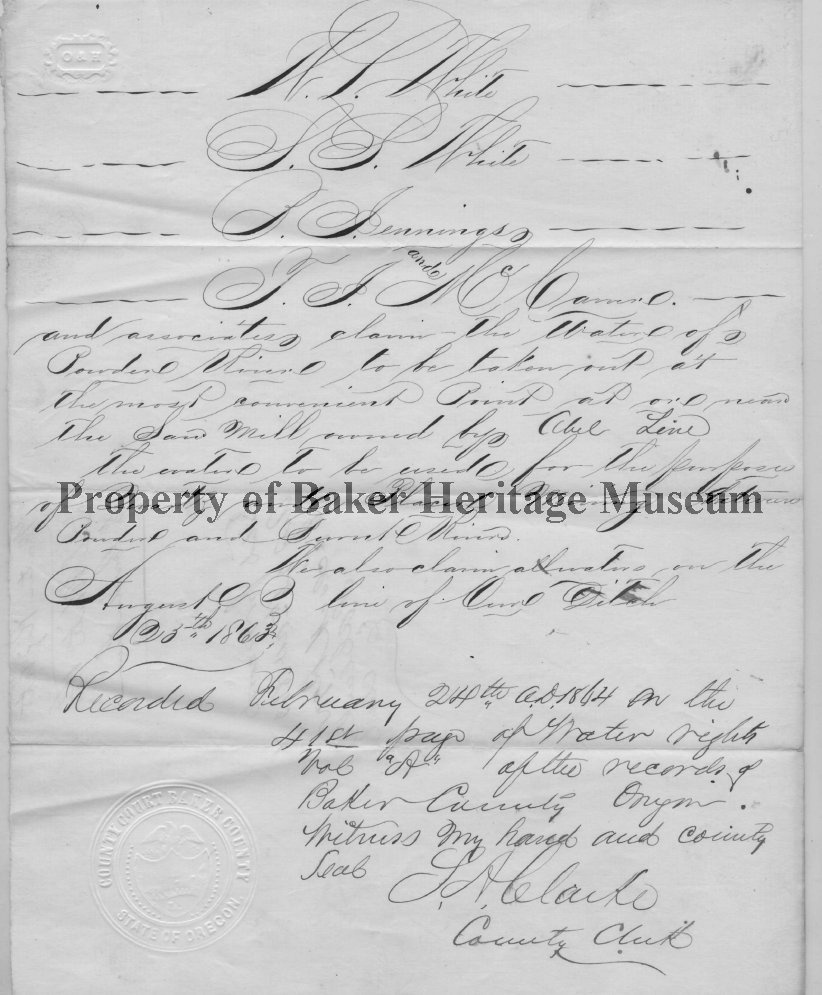 O & H
W. S. White
S. S. White
B. Jennings
and
T. J. McCamie.
and associates claim the Water of
Powder River to be taken out at
the most convenient Point at or near
the Saw Mill owned by Abel Line
the water to be used for the purpose
Property of Baker Heritage Museum
of and Mining Between
Powder and Burnt Rivers.
We also claim all waters on the
August line of Our Ditch
25th 1863.
Recorded February 24th A.D. 1864 on the
41st page of Water rights
Vol "A" of the records of
Baker County Oregon.
Witness My hand and county
Seal
S. A. Clarke
County Clerk
COUNTY COURT BAKER COUNTY
STATE OF OREGON